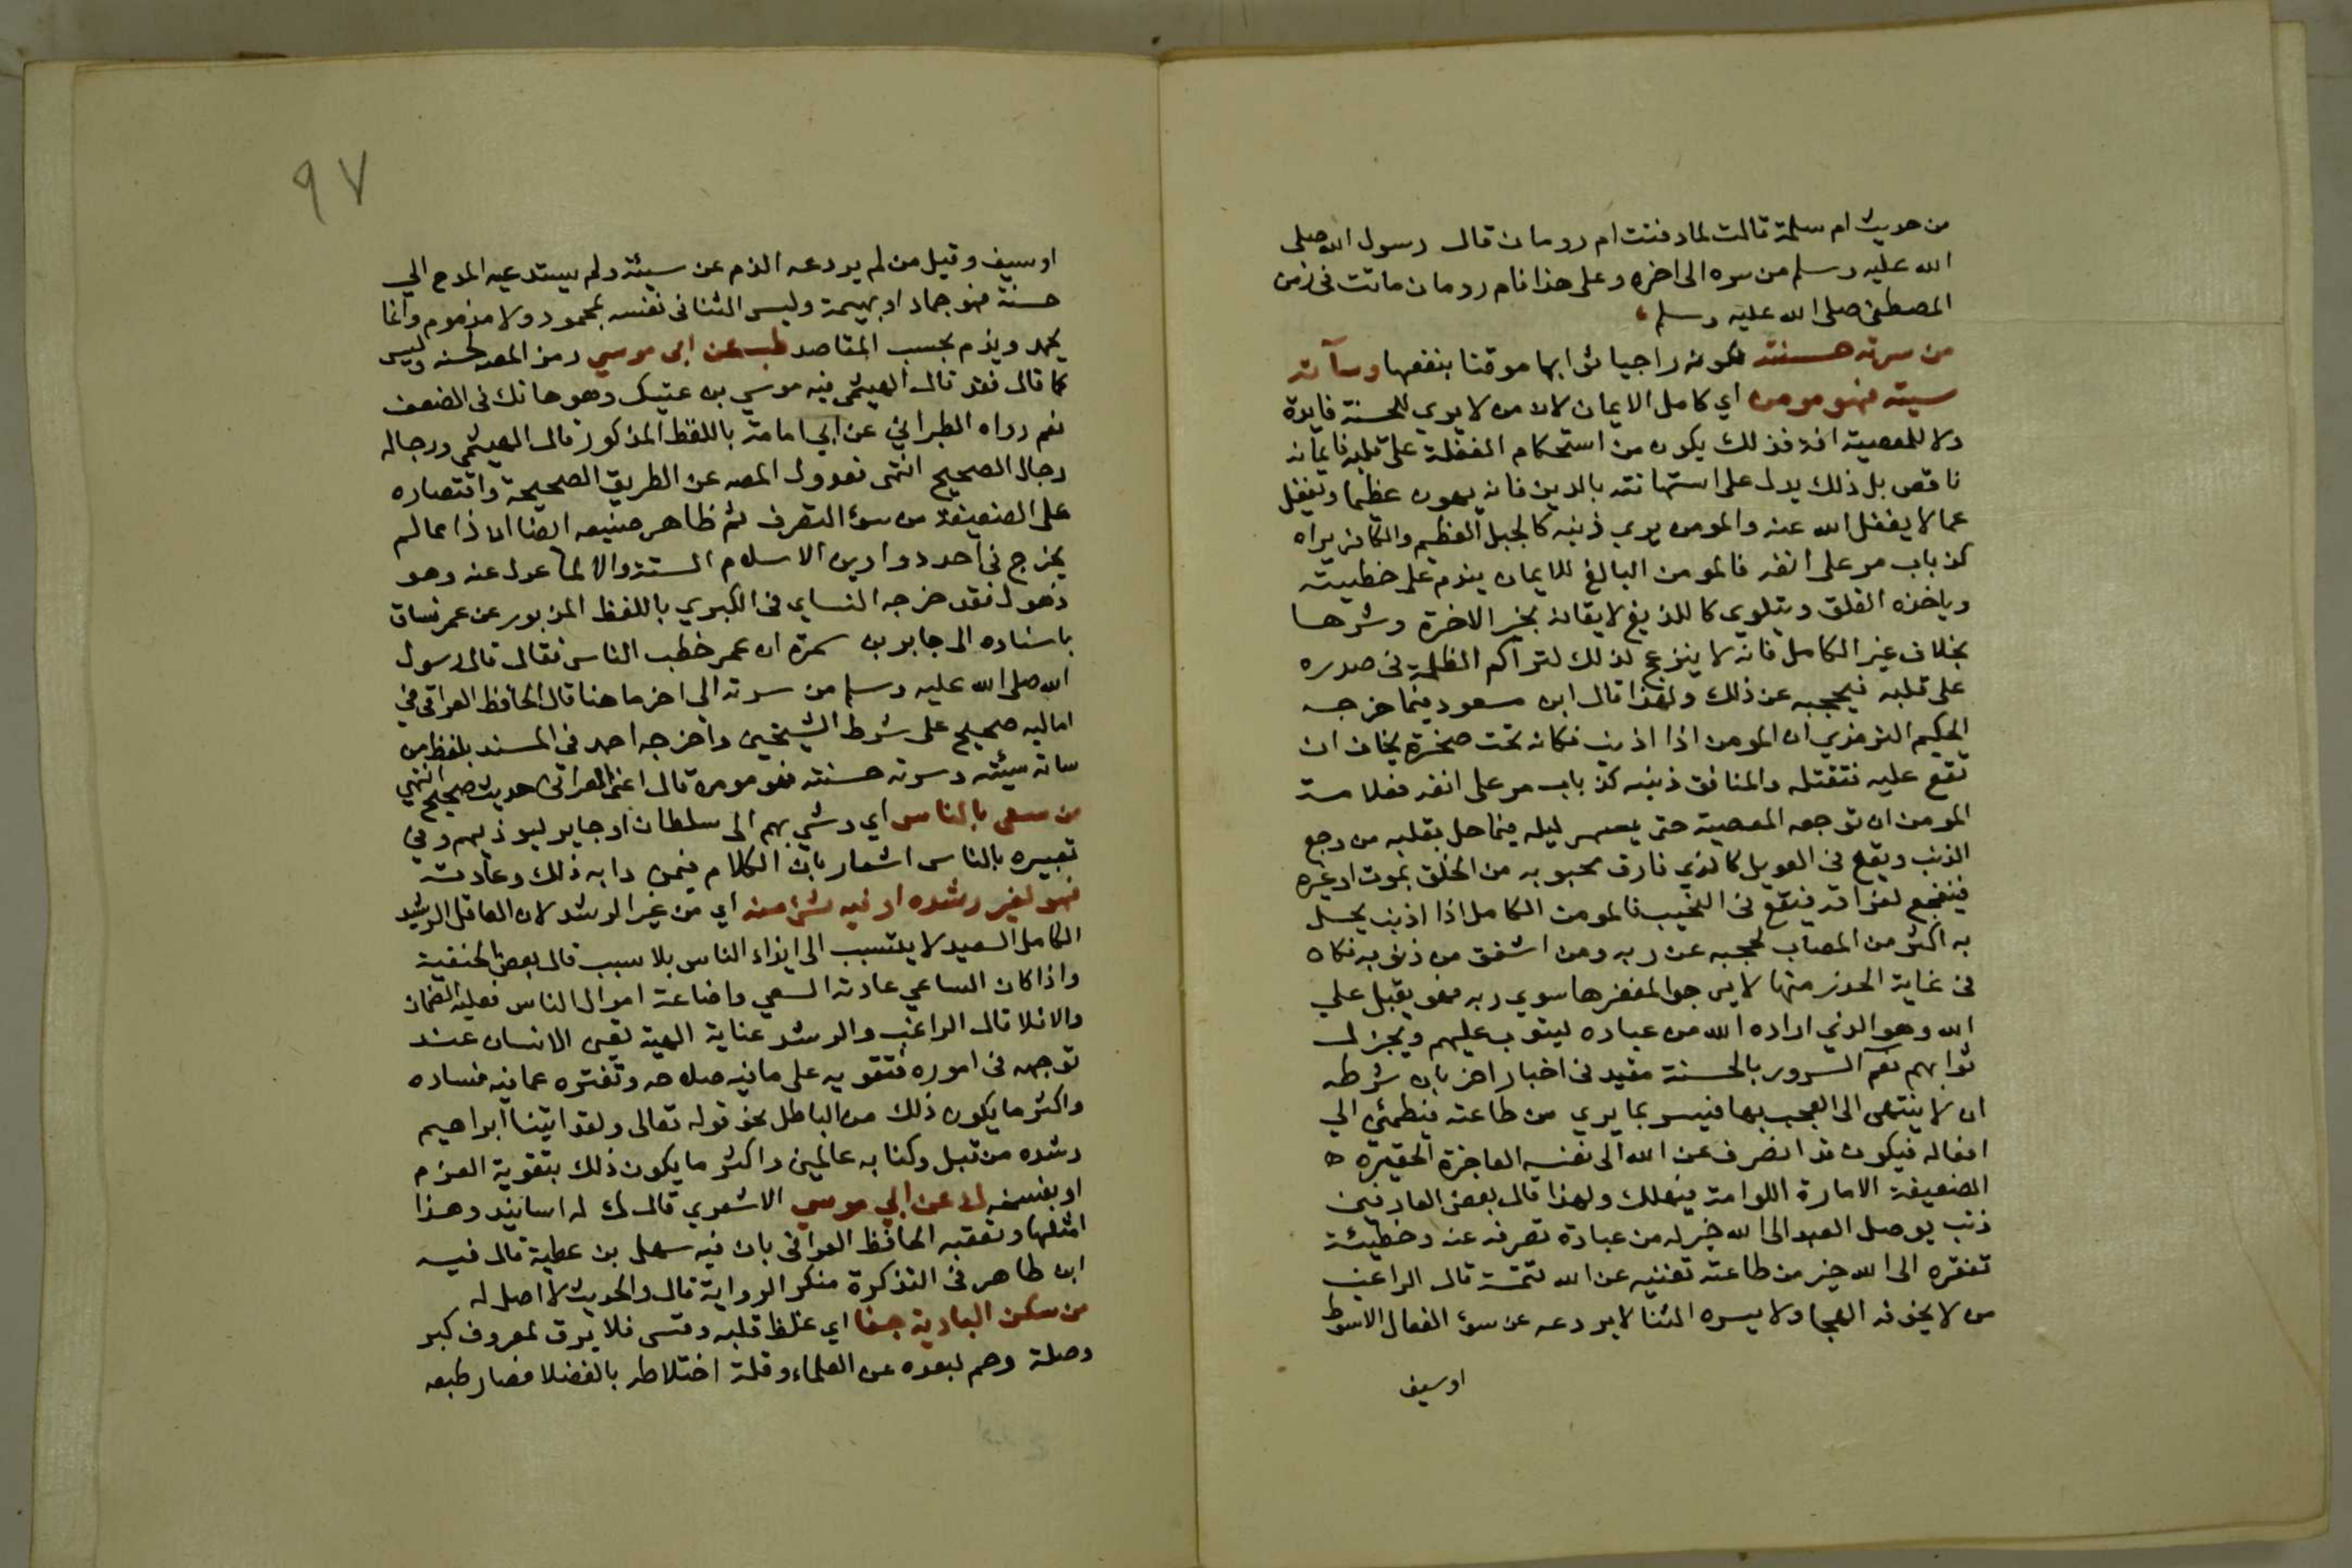 من حديث ام سلمة قالت لما دفنت ام رومان قال رسول الله صلى
الله عليه وسلم من سره الى اخره وعلى هذا فام رومان ماتت في زمن
المصطفى صلى الله عليه وسلم
من سرته حسنته لكونه راجيا ثوابها موقنا بنفعها وسآته
سيته فهو مومن اي كامل الايمان لان من لا يري للحسنة فايدة
ولا للمعصية افة فذلك يكون من استحكام الغفلة على قلبه فايمانه
ناقص بل ذلك يدل على استهانته بالدين فانه يهون عظيما ويغفل
عما لا يغفل الله عنه والمومن يري ذنبه كالجبل العظيم والكافر يراه
كذباب مر على انفه فالمومن البالغ للايمان يندم على خطيته
وياخذه القلق ويتلوى كاللديغ لايقانه بخير الاخرة وشرها
بخلاف غير الكامل فانه لا ينزعج لذلك لتراكم الظلمة في صدره
على قلبه فيحجبه عن ذلك ولهذا قال ابن مسعود فيما خرجه
الحكيم الترمذي ان المومن اذا اذنب فكانه تحت صخرة يخاف ان
تقع عليه فتقتله والمنافق ذنبه كذباب مر على انفه فعلامة
المومن ان توجعه المعصية حتى يسهر ليله فيما حل بقلبه من وجع
الذنب ويقع في العويل كالذي فارق محبوبه من الخلق بموت او غيره
فيتفجع لفراقه فيقع في النحيب فالمومن الكامل اذا اذنب يحل
به اكثر من المصاب لحجبه عن ربه ومن اشفق من ذنوبه فكان
في غاية الحذر منها لا يرجو المغفرها سوي ربه فهو يقبل علي
الله وهو الذي اراده الله من عباده ليتوب عليهم ويجزل
ثوابهم نعم السرور بالحسنة مقيد في اخبار اخر بان شرطه
ان لا ينتهى الى العجب بها فيسر بما يري من طاعته فيطمئن الي
افعاله فيكون قد انصرف عن الله الى نفسه العاجزة الحقيرة
الضعيفة الامارة اللوامة فيهلك ولهذا قال بعض العارفين
ذنب يوصل العبد الى الله خير له من عبادة تصرفه عنه وخطيئة
تفقره الى الله خير من طاعته تغنيه عن الله تتمة قال الراغب
من لا يخوفه الهجا ولا يسره الثنا لا يردعه عن سوء الفعال الا سوط
او سيف
٩٧
او سيف وقيل من لم يردعه الذم عن سيئة ولم يستدعيه المدح الي
حسنة فهو جماد او بهيمة وليس الثنا في نفسه بمحمود ولا مذموم وانما
يحمد ويذم بحسب المقاصد طب عن ابى موسي رمز المصه لحسنه وليس
كما قال فقد قال الهيثمى فيه موسي بن عتيك وهو هالك في الضعف
نعم رواه الطبراني عن ابي امامة باللفظ المذكور قال الهيثمي ورجاله
رجال الصحيح انتهى فعدول المصه عن الطريق الصحيحة واقتصاره
على الضعيفة من سوء التصرف ثم ظاهر صنيعه ايضا ان ذا مما لم
يخرج في احد دواوين الاسلام الستة والا لما عدل عنه وهو
ذهول فقد خرجه النساي في الكبري باللفظ المزبور عن عمر فساق
باسناده الى جابر بن سمرة ان عمر خطب الناس فقال قال رسول
الله صلى الله عليه وسلم من سرته الى اخر ما هنا قال الحافظ العراقي في
اماليه صحيح على شرط الشيخين واخرجه احمد في المسند بلفظ من
ساته سيئته وسرته حسنته فهو مومن قال اعنى العراقي حديث صحيح انتهي
من سعى بالناس اي وشي بهم الى سلطان او جاير ليوذيهم وفي
تعبيره بالناس اشعار بان الكلام فيمن دابه ذلك وعادته
فهو لغير رشده او فيه شئ منه اي من غير الرشد لان العاقل الرشيد
الكامل السعيد لا يتسبب الى ايذاء الناس بلا سبب قال بعض الحنفية
واذا كان الساعي عادته السعي واضاعة اموال الناس فعليه الضمان
والا فلا قال الراغب والرشد عناية الهية تعين الانسان عند
توجهه في اموره فتقويه على ما فيه صلاحه وتفتره عما فيه فساده
واكثر ما يكون ذلك من الباطل نحو قوله تعالى ولقد اتينا ابراهيم
رشده من قبل وكنا به عالمين واكثر ما يكون ذلك بتقوية العزم
او بفسخه ك عن ابي موسي الاشعري قال ك له اسانيد وهذا
امثلها وتعقبه الحافظ العراقي بان فيه سهل بن عطية قال فيه
ابن طاهر في التذكرة منكر الرواية قال والحديث لا اصل له
من سكن البادية جفا اي غلظ قلبه وقسى فلا يرق لمعروف كبر
وصلة رحم لبعده عن العلماء وقلة اختلاطه بالفضلا فصار طبعه